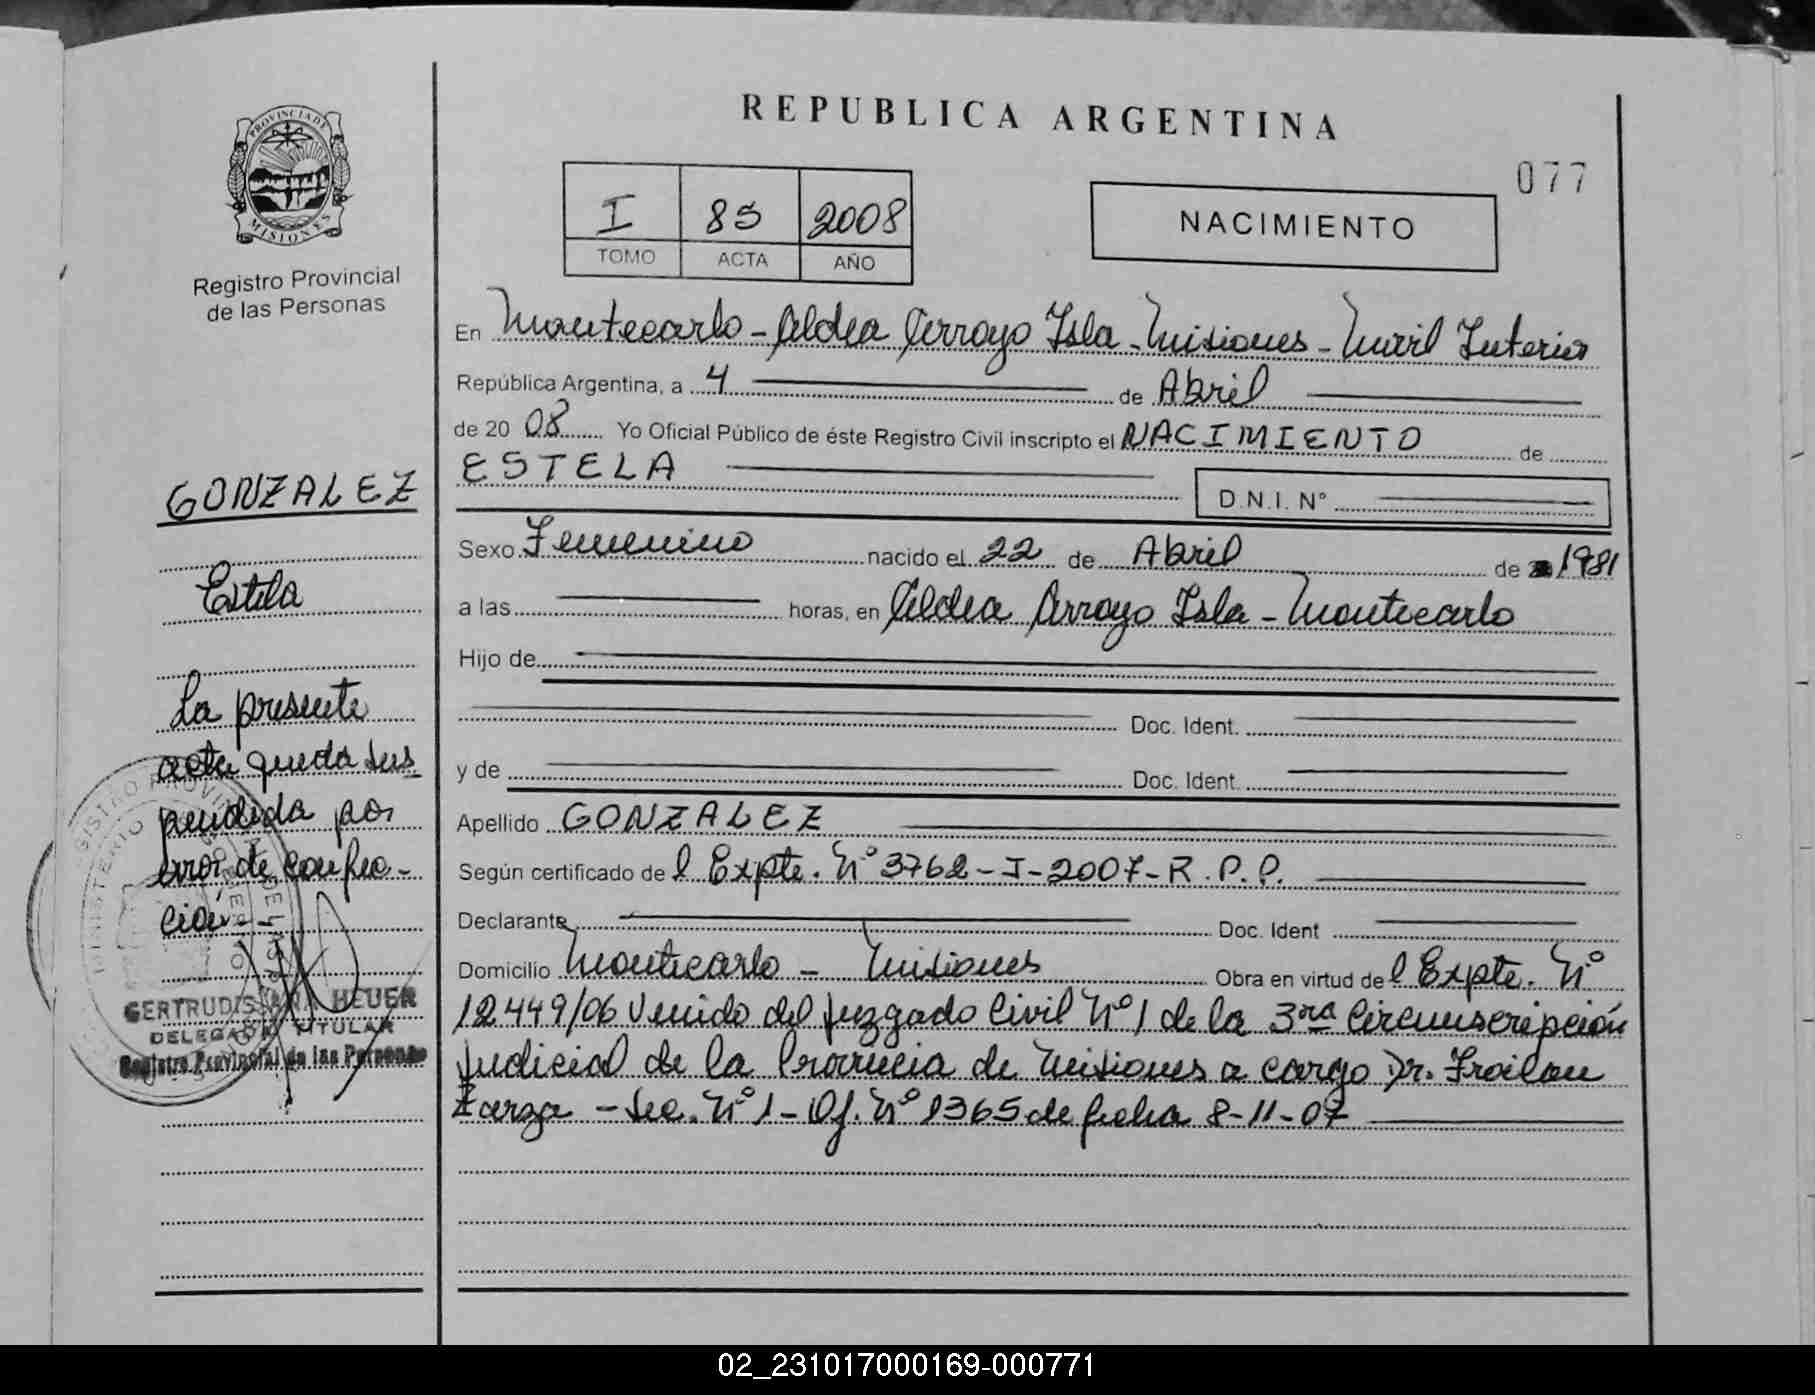 PROVINCIA DE
MISIONES
Registro Provincial
de las Personas
GONZALEZ
Estela
La presente
acta queda sus
pendida por
error de confec-
ción.-
GERTRUDIS HEUER
DELEGADA TITULAR
Registro Provincial de las Personas
REPUBLICA ARGENTINA
077
I 85 2008
TOMO ACTA AÑO
NACIMIENTO
En Montecarlo - Aldea Arroyo Isla - Misiones - Móvil Interior
República Argentina, a 4 de Abril
de 20 08 Yo Oficial Público de éste Registro Civil inscripto el NACIMIENTO de
ESTELA
D.N.I. N°
Sexo Femenino nacido el 22 de Abril de 1981
a las horas, en Aldea Arroyo Isla - Montecarlo
Hijo de
Doc. Ident.
y de Doc. Ident.
Apellido GONZALEZ
Según certificado de l Expte. N° 3762-I-2007-R.P.P.
Declarante Doc. Ident
Domicilio Montecarlo - Misiones Obra en virtud de l Expte. N°
12449/06 Venido del Juzgado Civil N° 1 de la 3ra Circunscripción
Judicial de la Provincia de Misiones a cargo Dr. Froilan
Zarza - Sec. N° 1 - Of. N° 1365 de fecha 8-11-07
02_231017000169-000771